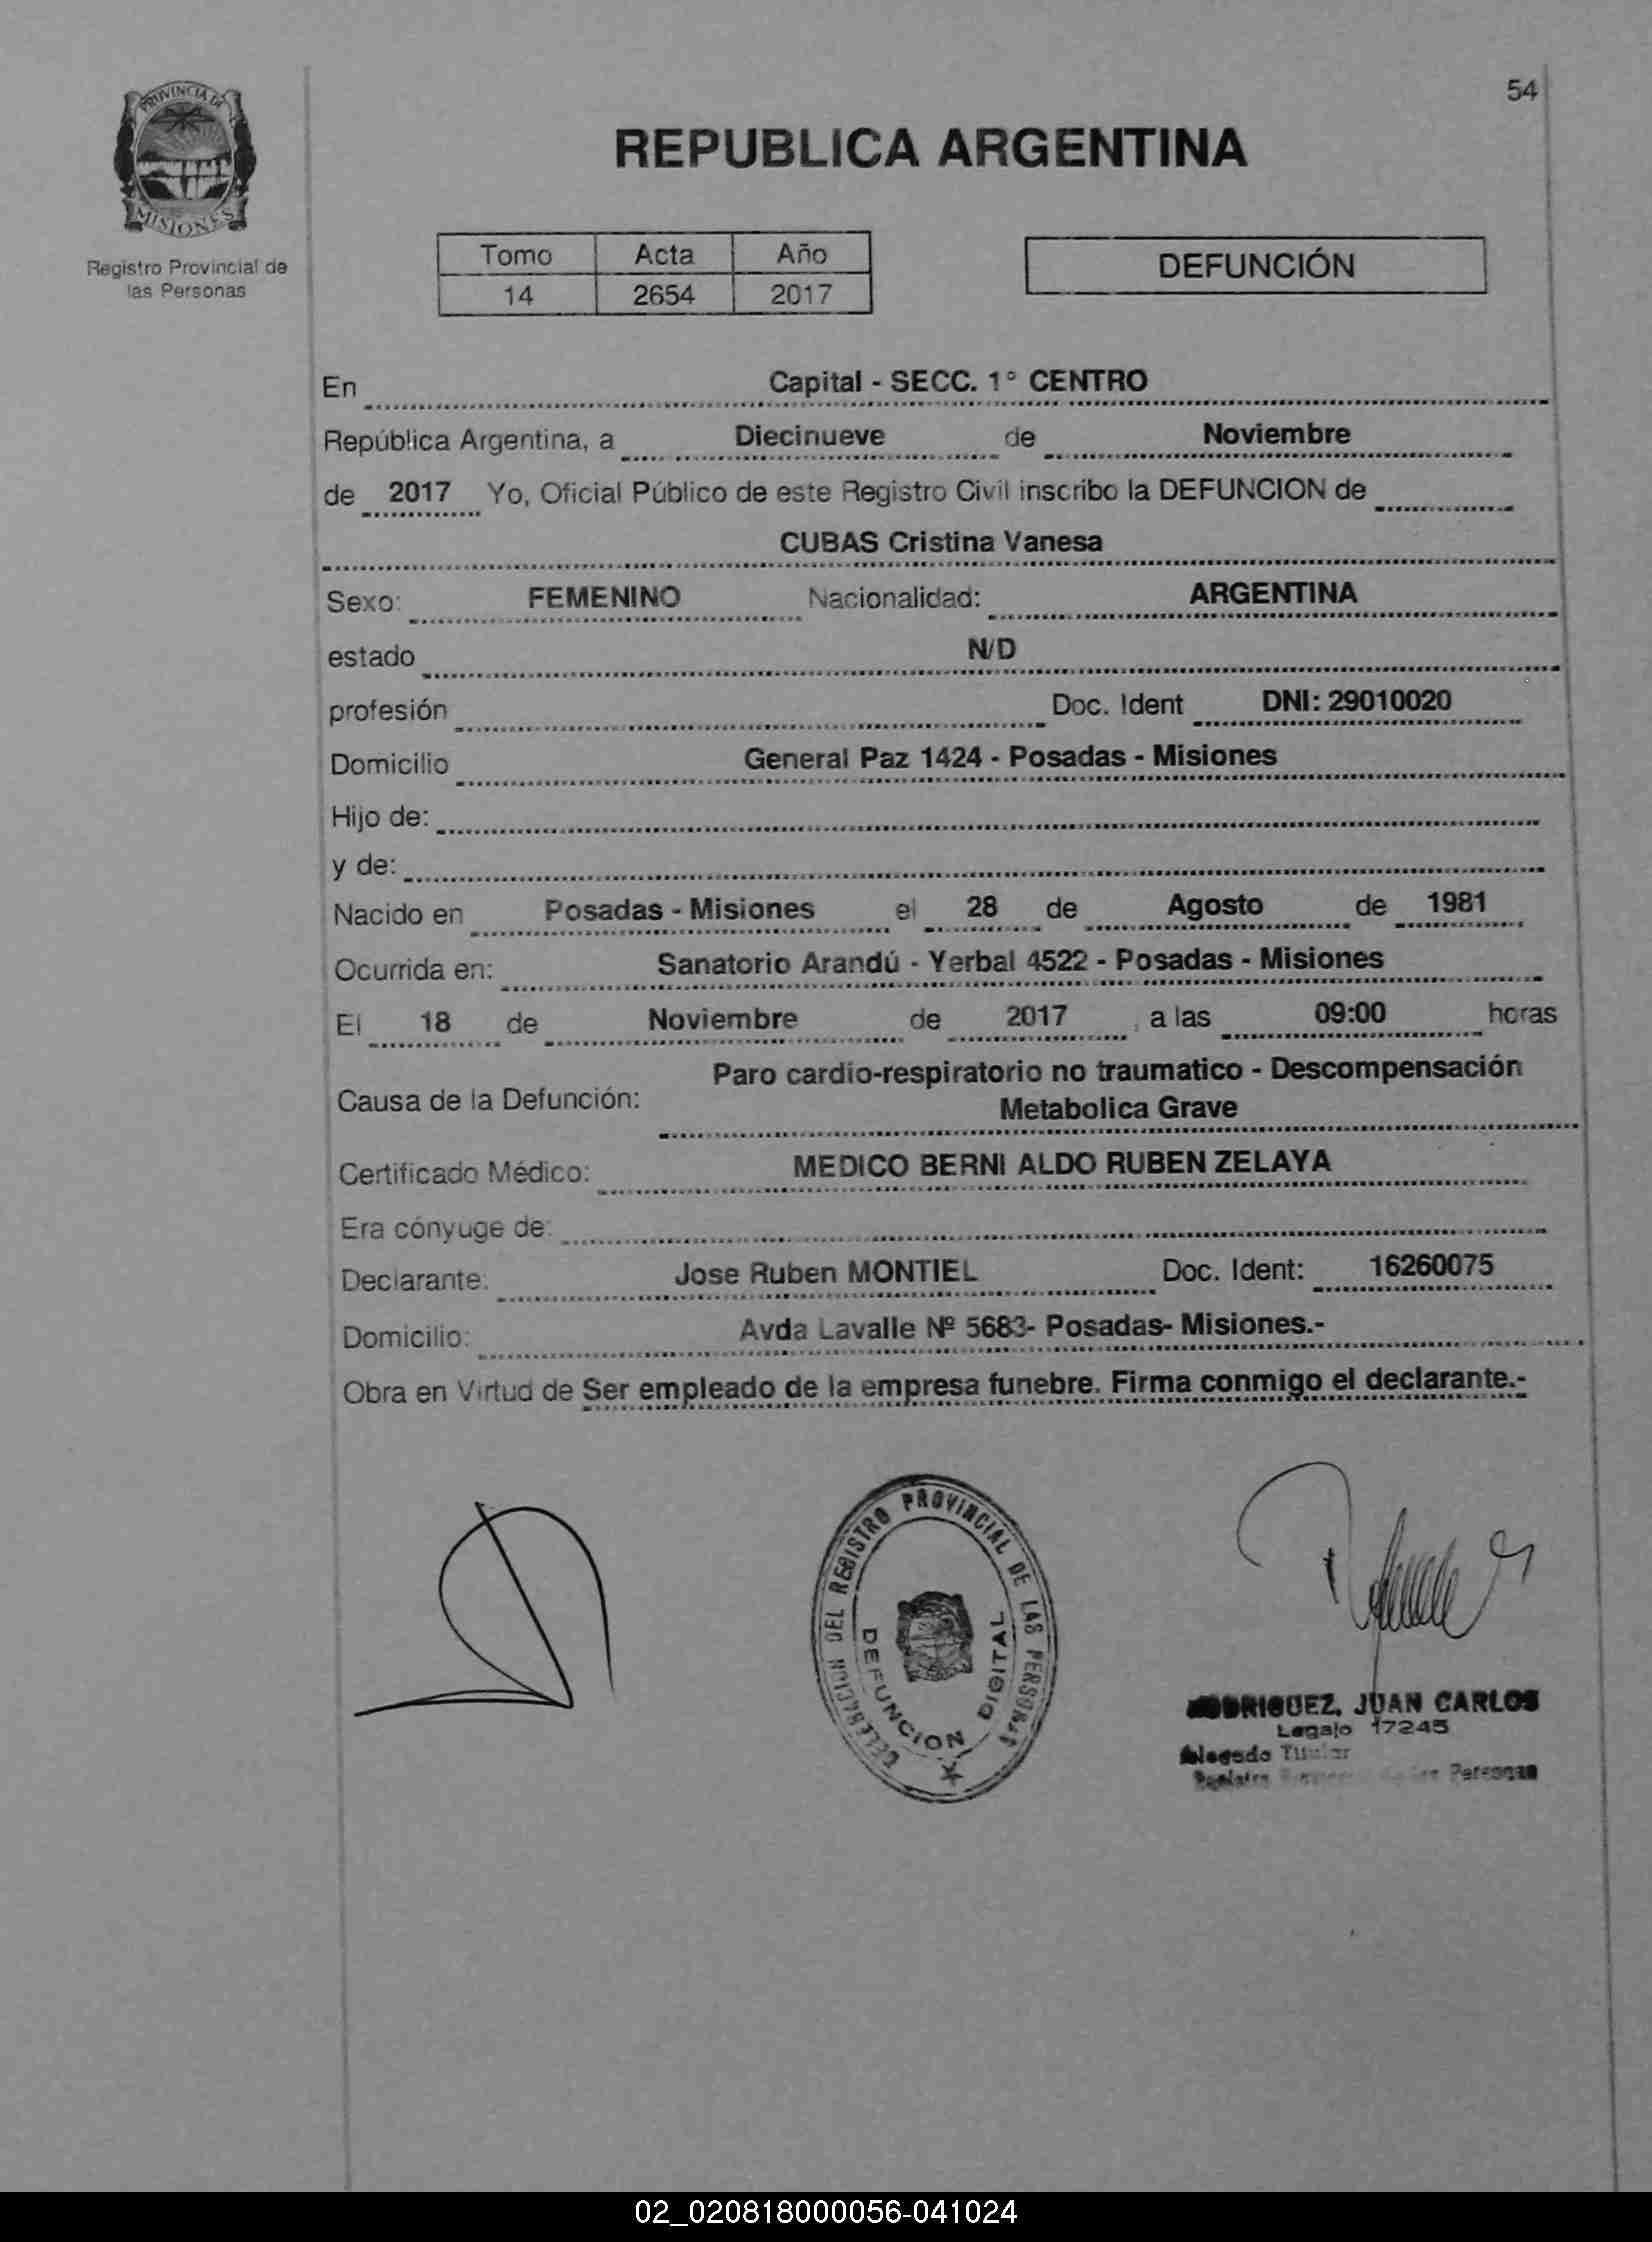 54
PROVINCIA DE
MISIONES
Registro Provincial de
las Personas
REPUBLICA ARGENTINA
Tomo Acta Año
14 2654 2017
DEFUNCIÓN
En Capital - SECC. 1° CENTRO
República Argentina, a Diecinueve de Noviembre
de 2017 Yo, Oficial Público de este Registro Civil inscribo la DEFUNCION de
CUBAS Cristina Vanesa
Sexo: FEMENINO Nacionalidad: ARGENTINA
estado N/D
profesión Doc. Ident DNI: 29010020
Domicilio General Paz 1424 - Posadas - Misiones
Hijo de:
y de:
Nacido en Posadas - Misiones el 28 de Agosto de 1981
Ocurrida en: Sanatorio Arandú - Yerbal 4522 - Posadas - Misiones
El 18 de Noviembre de 2017, a las 09:00 horas
Causa de la Defunción: Paro cardio-respiratorio no traumatico - Descompensación
Metabolica Grave
Certificado Médico: MEDICO BERNI ALDO RUBEN ZELAYA
Era cónyuge de:
Declarante: Jose Ruben MONTIEL Doc. Ident: 16260075
Domicilio: Avda Lavalle Nº 5683- Posadas- Misiones.-
Obra en Virtud de Ser empleado de la empresa funebre. Firma conmigo el declarante.-
DELEGACION DEL REGISTRO PROVINCIAL DE LAS PERSONAS
DEFUNCION DIGITAL
RODRIGUEZ, JUAN CARLOS
Legajo 17245
Delegado Titular
Registro Personas
02_020818000056-041024